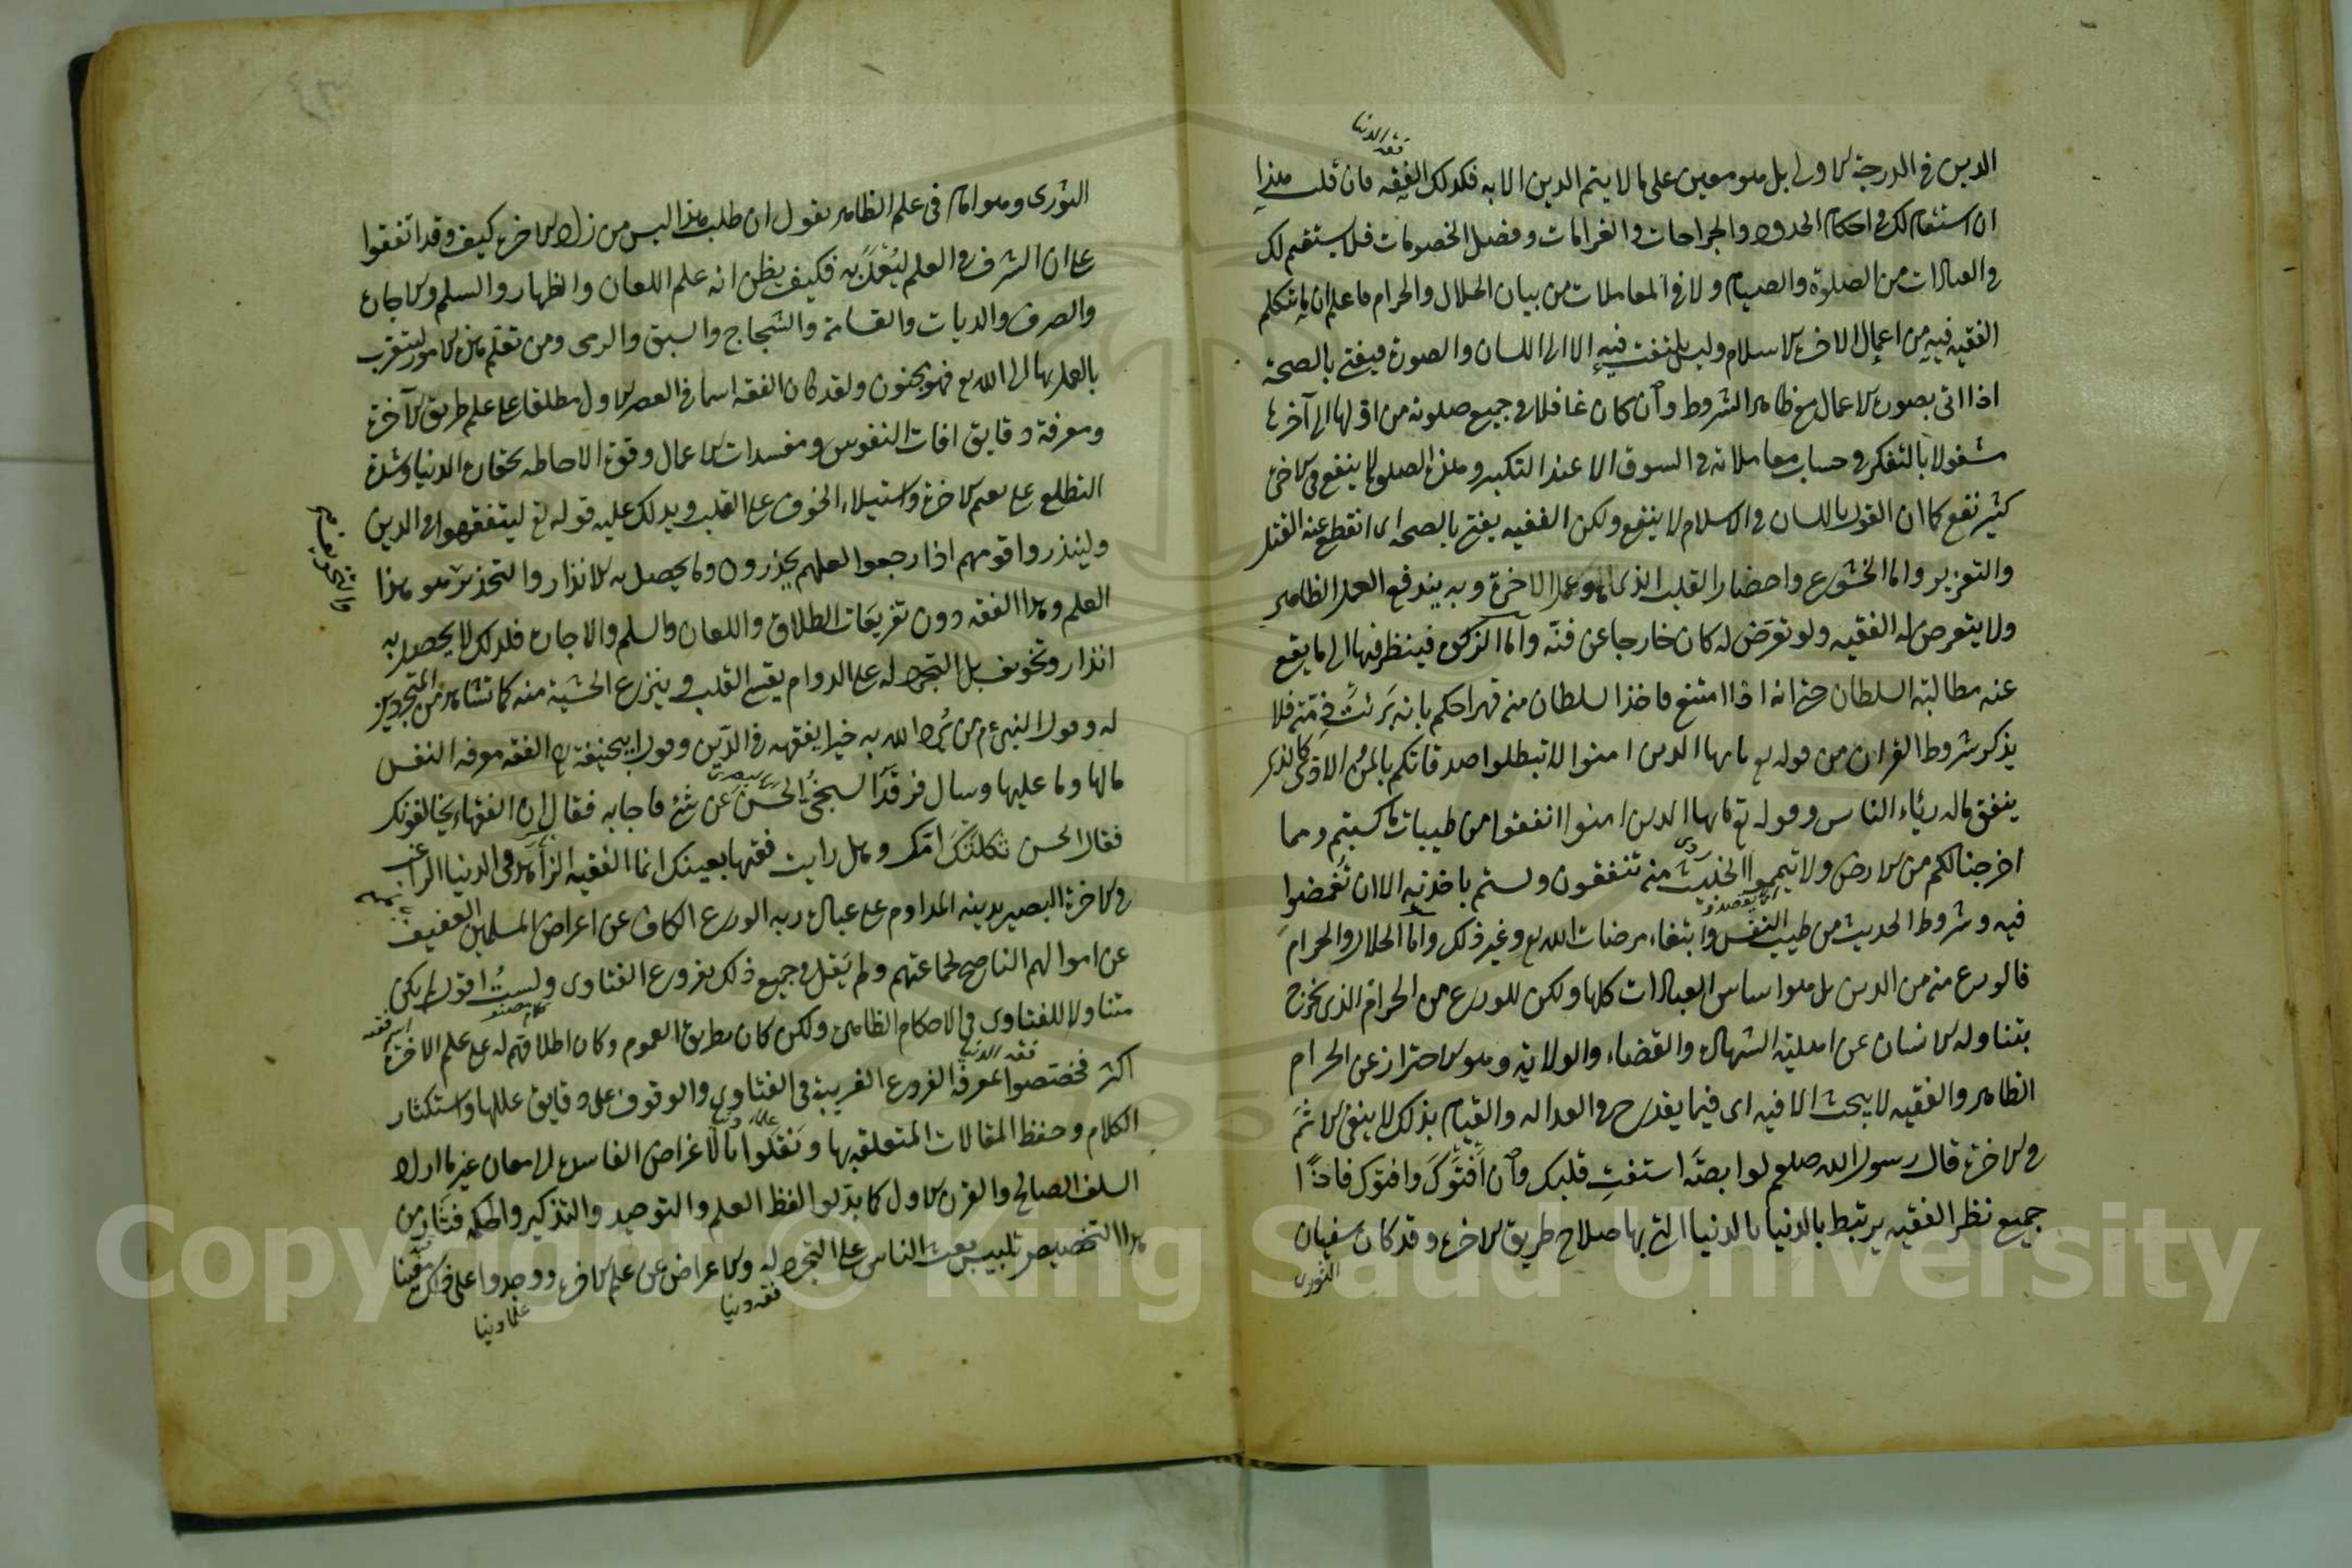 فقه الدنيا
الدين في الدرجة الاولى بل هو معين على ما لا يتم الدين الا به فكذلك الفقه فان قلت هذا
ان استقام لك في احكام الحدود والجراحات والغرامات وفصل الخصومات فلا يستقيم لك
في العبادات من الصلوة والصيام ولا في المعاملات من بيان الحلال والحرام فاعلم ان ما يتكلم
الفقيه فيه من اعمال الاخرة الاسلام وليس يلتفت فيه الا الى اللسان والصورة فيفتي بالصحة
اذا اتى بصورة الاعمال مع ظاهر الشروط وان كان غافلا في جميع صلوته من اولها الى آخرها
مشغولا بالتفكر في حساب معاملاته في السوق الا عند التكبير وهذه الصلوة لا ينفع في الاخرة
كثير نفع كما ان القول باللسان في الاسلام لا ينفع ولكن الفقيه يفتي بالصحة اى انقطع عنه القتل
والتعزير واما الخشوع واحضار القلب الذي هو عمل الاخرة وبه يندفع العمل الظاهر
ولا يتعرض له الفقيه ولو تعرض له كان خارجا عن فنه واما الزكوة فينظر فيها الى ما يقع
عنه مطالبة السلطان حتى انه اذا امتنع فاخذ السلطان منه قهرا حكم بانه برئت ذمته فلا
يذكر شروط القران من قوله تع يا ايها الذين امنوا لا تبطلوا صدقاتكم بالمن والاذى كالذى
ينفق ماله رئاء الناس وقوله تع يا ايها الذين امنوا انفقوا من طيبات ما كسبتم ومما
اخرجنا لكم من الارض ولا تيمموا الخبيث منه تنفقون ولستم باخذيه الا ان تغمضوا
فيه وشروط الحديث من طيب النفس وابتغاء مرضات الله تع وغير ذلك واما الحلال والحرام
فالورع منه من الدين بل هو اساس العبادات كلها ولكن للورع من الحرام الذي يخرج
بتناوله الانسان عن اهلية الشهادة والقضاء والولاية وهو الاحتراز عن الحرام
الظاهر والفقيه لا يبحث الا فيه اى فيما يقدح في العدالة والقيام بذلك لا ينفي الاثم
في الاخرة قال رسول الله صلعم لوابصة استفت قلبك وان افتوك وافتوك فاذا
جميع نظر الفقيه يرتبط بالدنيا بالدنيا التي بها صلاح طريق الاخرة وقد كان سفيان
الثوري
الثورى وهو امام في علم الظاهر يقول ان طلب هذا ليس من زاد الاخرة كيف وقد اتفقوا
على ان الشرف في العلم ليعمل به فكيف يظن انه علم اللعان والظهار والسلم والاجارة
والصرف والديات والقسامة والشجاج والسبق والرمى ومن تعلم هذه الامور ليتقرب
بالعمل بها الى الله تع فهو مجنون ولقد كان الفقه اسما في العصر الاول مطلقا على علم طريق الآخرة
ومعرفة دقايق افات النفوس ومفسدات الاعمال وقوة الاحاطة بحقارة الدنيا وشدة
التطلع على نعيم الاخرة واستيلاء الخوف على القلب ويدلك عليه قوله تع ليتفقهوا في الدين
ولينذروا قومهم اذا رجعوا اليهم لعلهم يحذرون وما يحصل به الانذار والتحذير هو هذا
العلم وهذا الفقه دون تفريعات الطلاق واللعان والسلم والاجارة فذلك لا يحصل به
انذار وتخويف بل التجرد له على الدوام يقسي القلب وينزع الخشية منه كما تشاهد من المتجردين
له وقول النبي عم من يرد الله به خيرا يفقهه في الدين وقول ابيحنيفة رح الفقه معرفة النفس
مالها وما عليها وسال فرقد السبخي الحسن عن شئ فاجابه فقال ان الفقهاء يخالفونك
فقال الحسن ثكلتك امك وهل رايت فقيها بعينك انما الفقيه الزاهد في الدنيا الراغب
في الاخرة البصير بدينه المداوم على عبادة ربه الورع الكاف عن اعراض المسلمين العفيف
عن اموالهم الناصح لجماعتهم ولم يقل في جميع ذلك بفروع الفتاوى ولست اقول لم يكن
متناولا للفتاوى في الاحكام الظاهرة ولكن كان بطريق العموم وكان اطلاقهم له على علم الاخرة
فقه الدنيا
اكثر فخصصوا بمعرفة الفروع الغريبة في الفتاوى والوقوف على دقايق عللها واستكثار
الكلام وحفظ المقالات المتعلقة بها ونقلوا بالاغراض الفاسدة الى معان غير ما اراد
السلف الصالح والقرن الاول كما بدلوا لفظ العلم والتوحيد والتذكير والحكمة فثار من
هذا التخصيص تلبيس بعث الناس على التجرد له والاعراض عن علم الاخرة ووجدوا على ذلك معينا
فقه دنيا
علماء دنيا